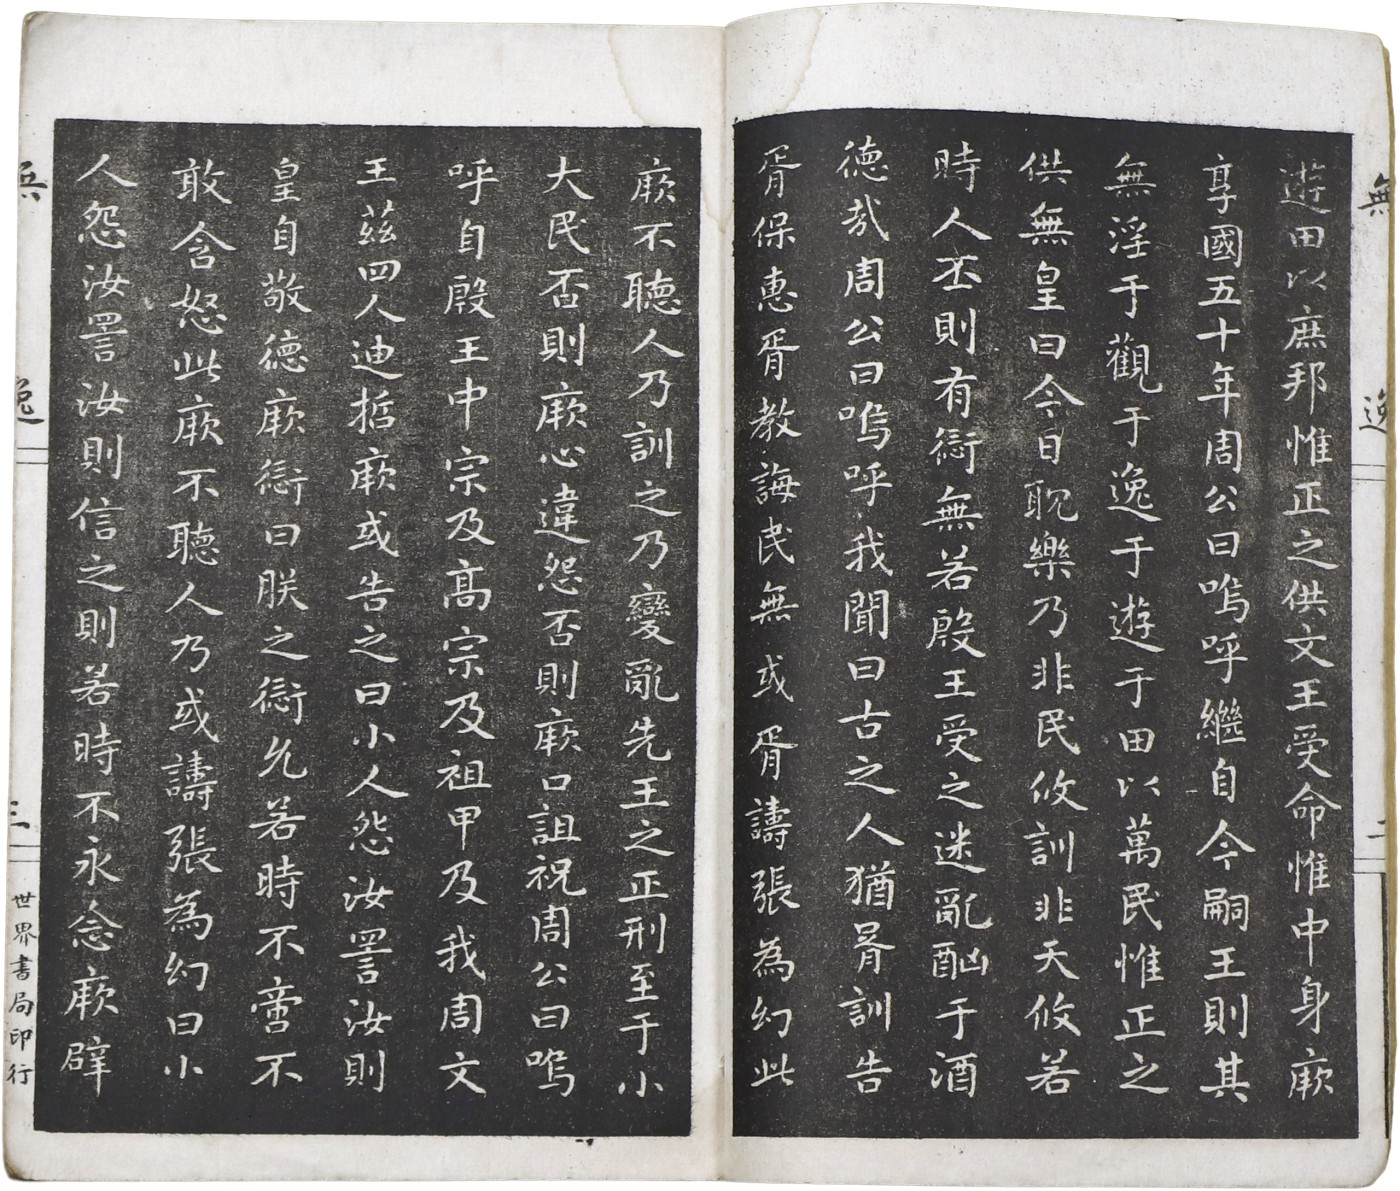 遊田以庶邦惟正之供文王受命惟中身厥
享國五十年周公曰嗚呼繼自今嗣王則其
無淫于觀于逸于遊于田以萬民惟正之
供無皇曰今日耽樂乃非民攸訓非天攸若
時人丕則有愆無若殷王受之迷亂酗于酒
德哉周公曰嗚呼我聞曰古之人猶胥訓告
胥保惠胥教誨民無或胥譸張為幻此
厥不聽人乃訓之乃變亂先王之正刑至于小
大民否則厥心違怨否則厥口詛祝周公曰嗚
呼自殷王中宗及高宗及祖甲及我周文
王茲四人迪哲厥或告之曰小人怨汝詈汝則
皇自敬德厥愆曰朕之愆允若時不啻不
敢含怒此厥不聽人乃或譸張為幻曰小
人怨汝詈汝則信之則若時不永念厥辟
無逸
三
世界書局印行